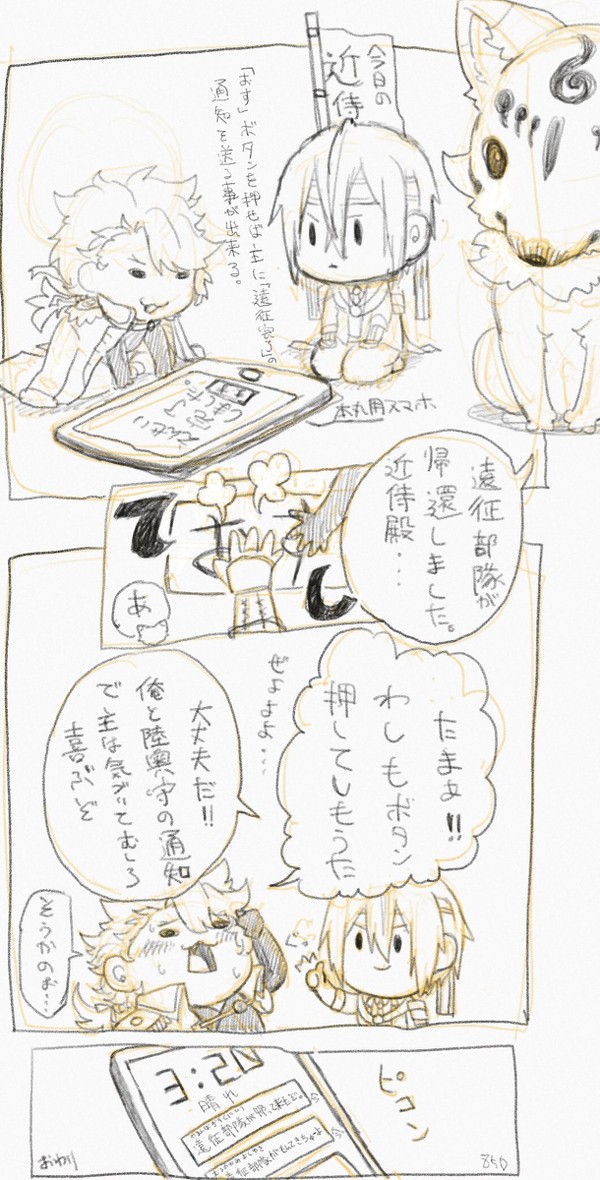 今日の
近侍
「おす」ボタンを押せば主に「遠征完了」の
通知を送る事が出来る。
本丸用スマホ
遠征部隊が
帰還しました。
近侍殿…
て
し
あ
たまぁ!!
わしもボタン
押してしもうた
ぜよよよ…
大丈夫だ!!
俺と陸奥守の通知
で主は気づいてむしろ
喜ぶぞ
そうかのお…
ピコン
3:20
晴れ
遠征部隊が帰って来たぞ。
今
今
おわり